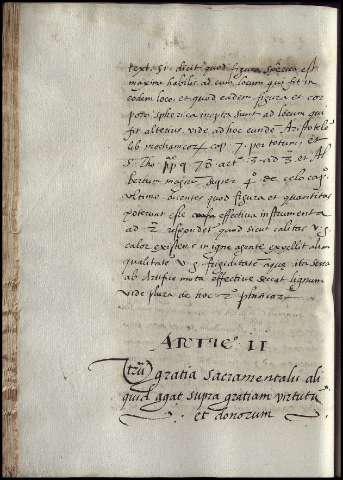 text. 51. dicit quod figura spherica est
maxime habilis ad eum locum qui fit in
eodem loco. et quod eadem figura et cor
pora spherica inepta sunt ad locum qui
fit alterius. vide ad hoc eunde Aristotele
lib. mechanicor cap. 7. per totum et
S. Tho. pp q 78 art 3 ad 3 et Al
bertum magnum super 4º de celo cap.
ultimo dicente quod figura et quantitas
poterunt esse effectiva instrumenta
ad 2 respondet quod sicut calitas v. g.
calor existens in igne agente expellit aliam
qualitate v. g. frigiditate aqua ita serra
ab Artifice mota effective secat lignum
vide plura de hoc
ARTIC. II
Utrũ gratia sacramentalis ali
quid agat supra gratiam virtutũ
et donorum